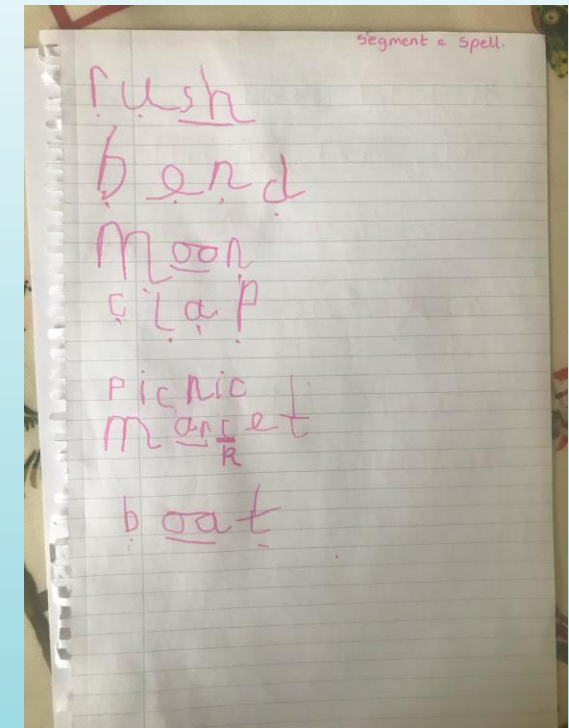 Segment & Spell.
rush
bend
Moon
clap
picnic
marcet
k
boat